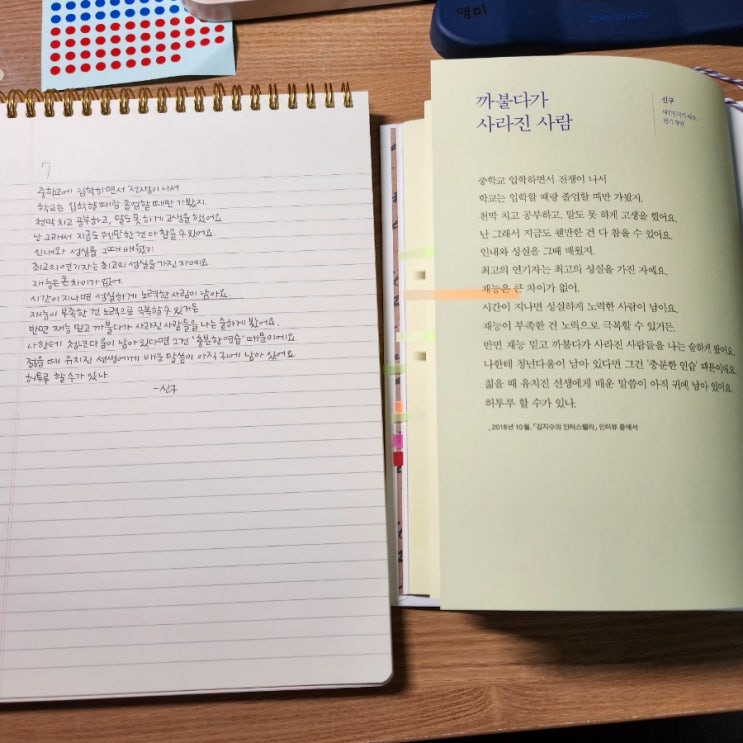 7
중학교에 입학하면서 전쟁이 나서
학교는 입학할 때랑 졸업할 때만 가봤지.
천막 치고 공부하고, 말도 못 하게 고생을 했어요.
난 그래서 지금도 웬만한 건 다 참을 수 있어요.
인내와 성실을 그때 배웠지.
최고의 연기자는 최고의 성실을 가진 자예요.
재능은 큰 차이가 없어.
시간이 지나면 성실하게 노력한 사람이 남아요.
재능이 부족한 건 노력으로 극복할 수 있거든
반면 재능 믿고 까불다가 사라진 사람들을 나는 숱하게 봤어요.
나한테 청년다움이 남아 있다면 그건 '충분한 연습' 때문이에요.
젊을 때 유치진 선생에게 배운 말씀이 아직 귀에 남아 있어요
허투루 할 수가 있나
-신구
영미
까불다가
사라진 사람
신구
대한민국의 배우,
중학교 입학하면서 전쟁이 나서
학교는 입학할 때랑 졸업할 때만 가봤지.
천막 치고 공부하고, 말도 못 하게 고생을 했어요.
난 그래서 지금도 웬만한 건 다 참을 수 있어요.
인내와 성실을 그때 배웠지.
최고의 연기자는 최고의 성실을 가진 자예요.
재능은 큰 차이가 없어.
시간이 지나면 성실하게 노력한 사람이 남아요.
재능이 부족한 건 노력으로 극복할 수 있거든.
반면 재능 믿고 까불다가 사라진 사람들을 나는 숱하게 봤어요.
나한테 청년다움이 남아 있다면 그건 '충분한 연습' 때문이에요.
젊을 때 유치진 선생에게 배운 말씀이 아직 귀에 남아 있어요.
허투루 할 수가 있나.
_2018년 10월, 「김지수의 인터스텔라」 인터뷰 중에서